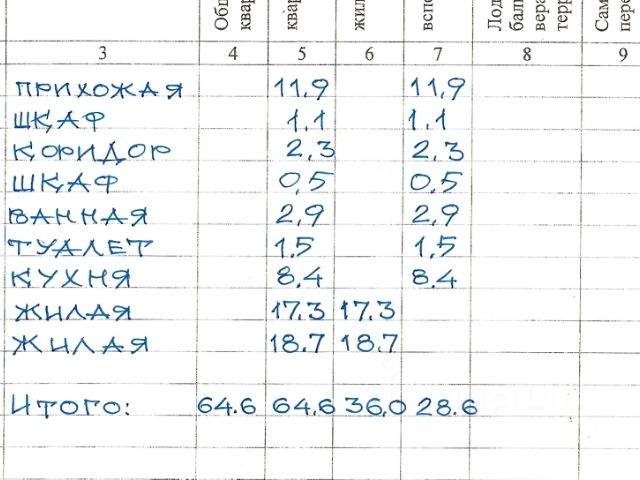 Об
квар
квар
жил
вспо
Лод
балк
вера
терр
Сам
пере
3 4 5 6 7 8 9
ПРИХОЖАЯ 11,9 11,9
ШКАФ 1.1 1.1
КОРИДОР 2,3 2,3
ШКАФ 0,5 0,5
ВАННАЯ 2,9 2,9
ТУАЛЕТ 1,5 1,5
КУХНЯ 8,4 8,4
ЖИЛАЯ 17,3 17,3
ЖИЛАЯ 18,7 18,7
ИТОГО: 64.6 64,6 36,0 28.6